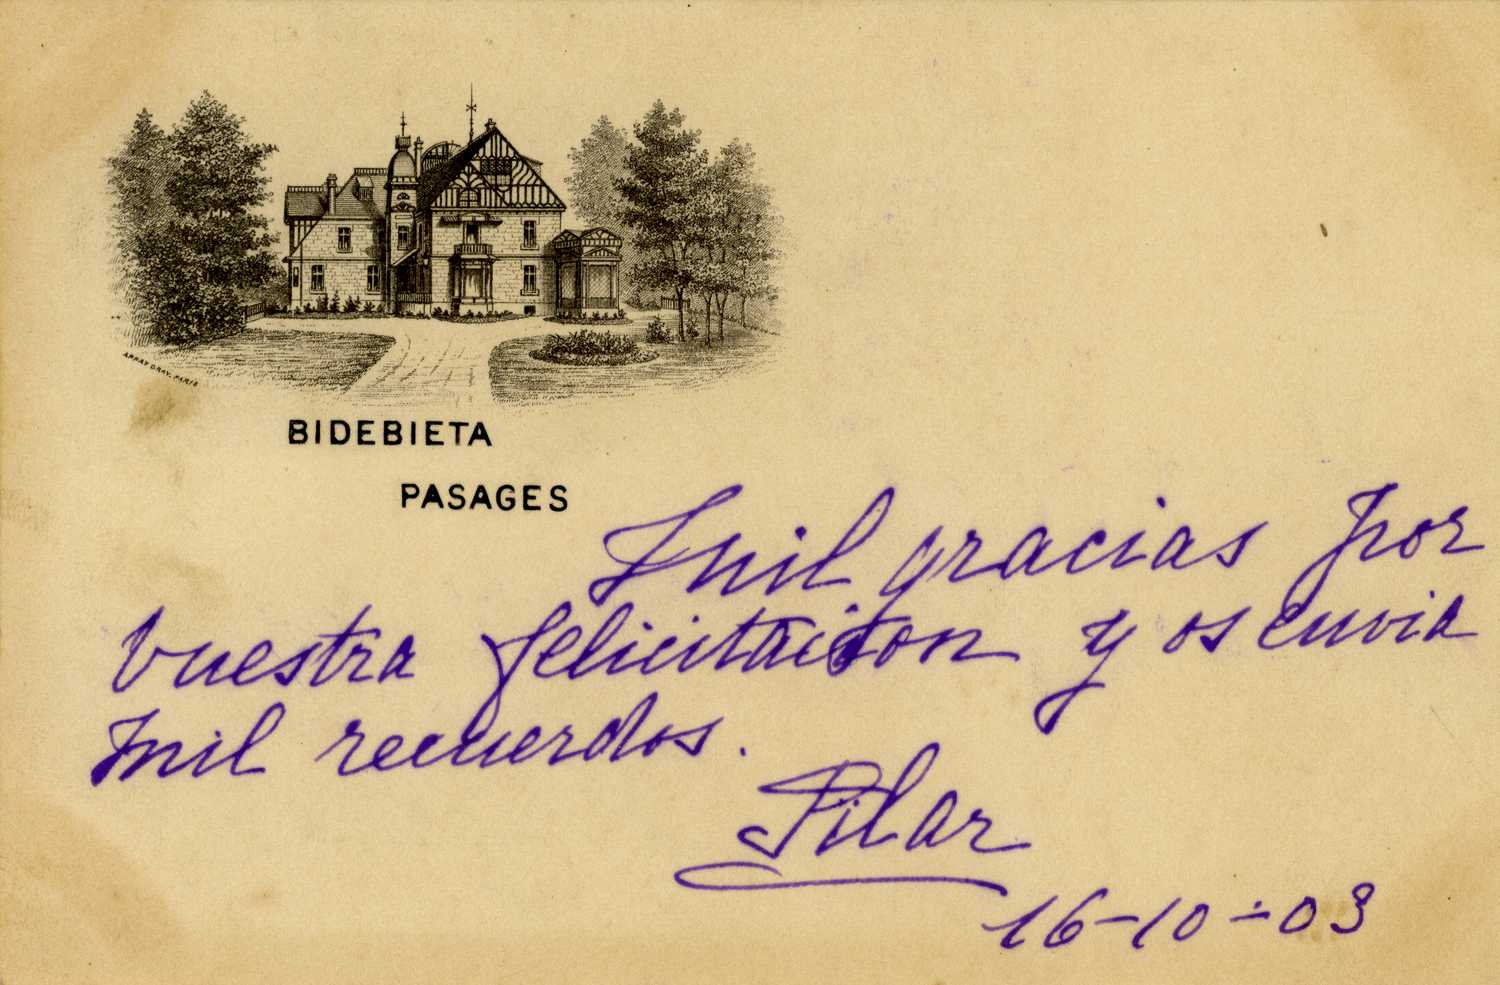 APPAY GRAV. PARIS
BIDEBIETA
PASAGES
Mil gracias por
vuestra felicitacion y os envia
mil recuerdos.
Pilar
16-10-03